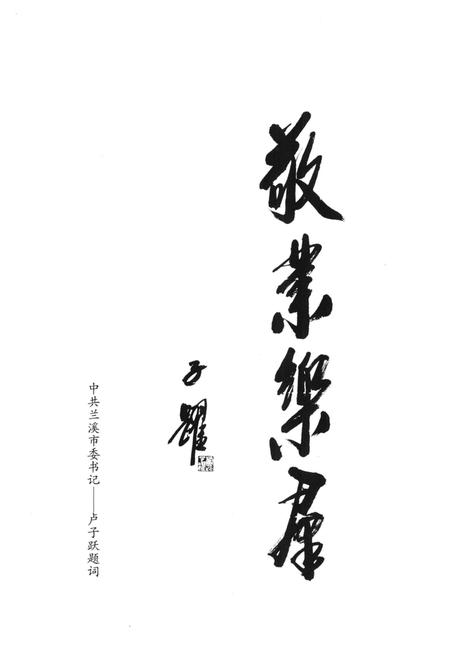 敬業樂羣
子躍
中共兰溪市委书记——卢子跃题词